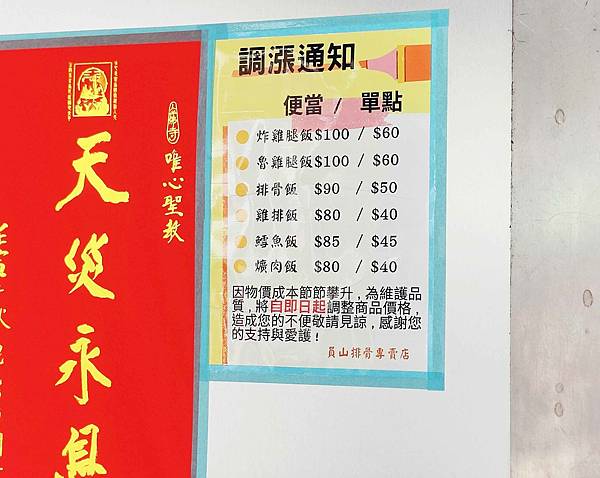 天災永息
唯心聖教
調漲通知
便當 / 單點
炸雞腿飯$100 / $60
魯雞腿飯$100 / $60
排骨飯 $90 / $50
雞排飯 $80 / $40
鱈魚飯 $85 / $45
爌肉飯 $80 / $40
因物價成本節節攀升,為維護品
質,將自即日起調整商品價格,
造成您的不便敬請見諒,感謝您
的支持與愛護!
員山排骨專賣店